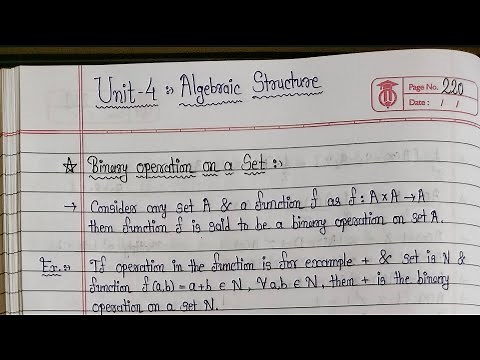 Unit-4 :- Algebraic Structure
Page No. 220
Date : / /
☆ Binary operation on a Set :-
→ Consider any set A & a function f as f : A × A → A
then function f is said to be a binary operation on set A.
Ex.:- If operation in the function is for example + & set is N &
function f (a,b) = a+b ∈ N, ∀ a,b ∈ N, then + is the binary
operation on a set N.